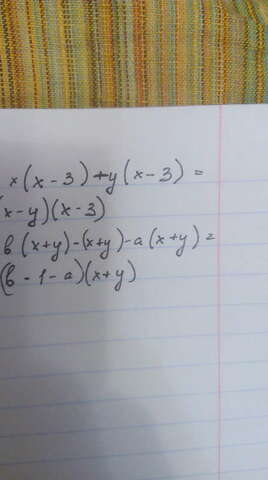 x(x-3)+y(x-3)=
(x-y)(x-3)
в(x+y)-(x+y)-a(x+y)=
(в-1-a)(x+y)